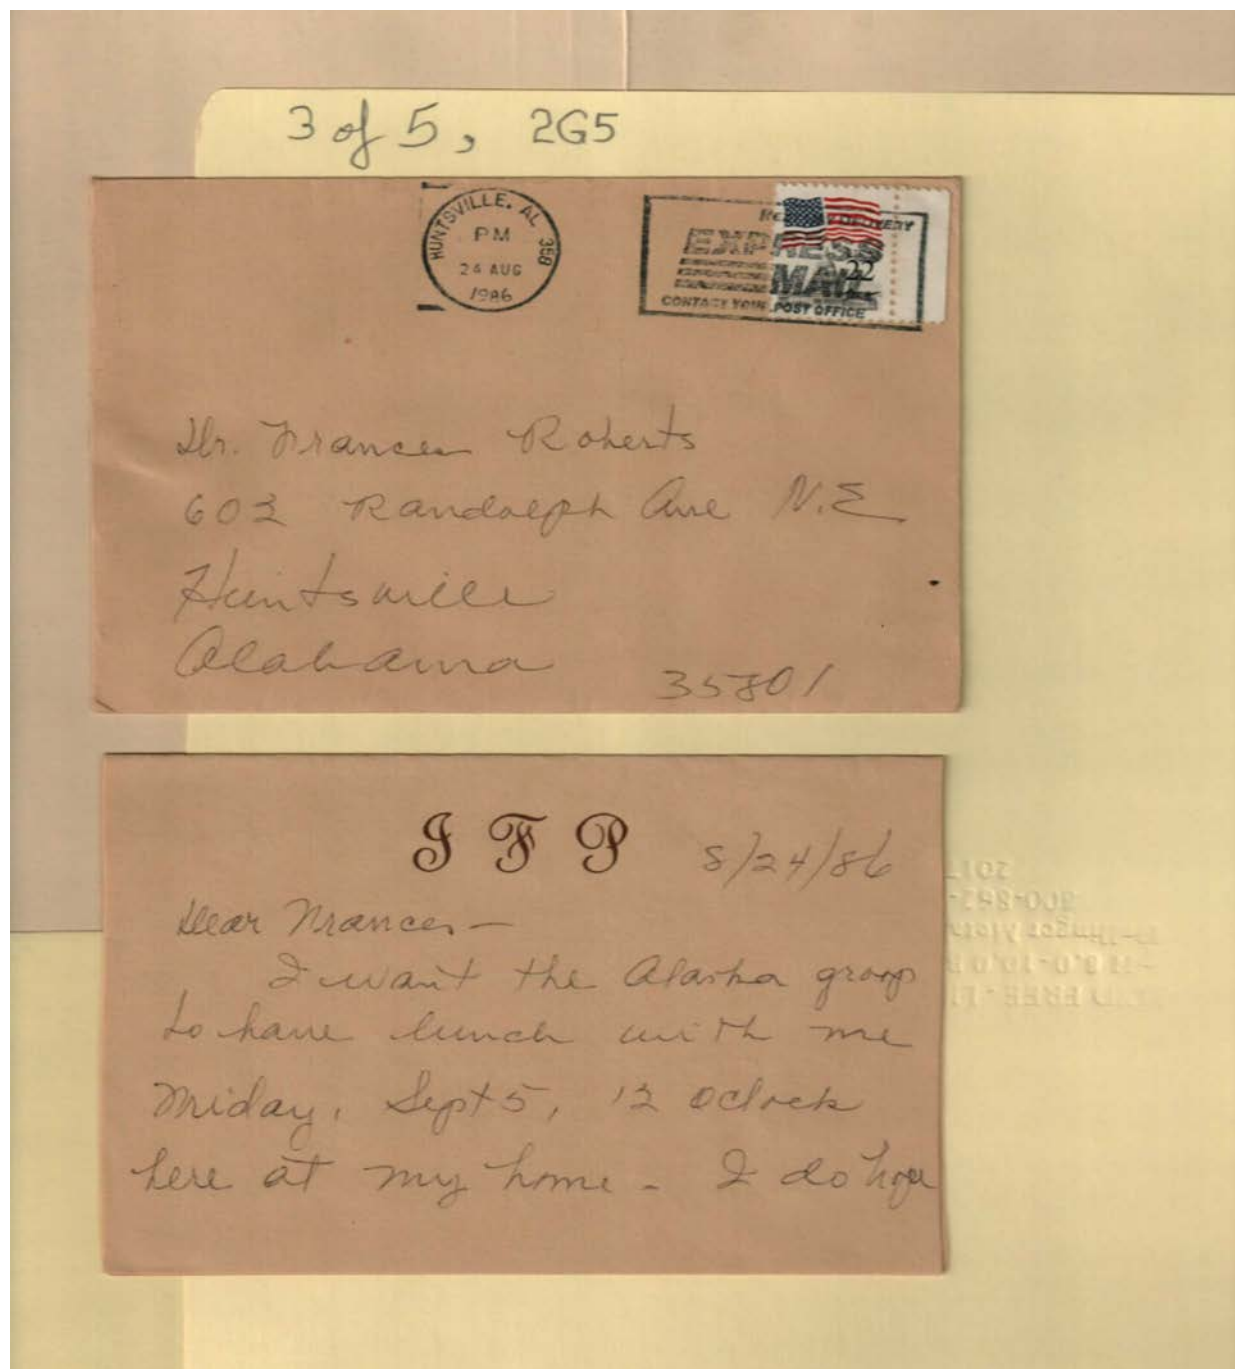 3 of 5, 2G5
HUNTSVILLE, AL 358
PM
24 AUG
1986
EXPRESS
MAIL
22
CONTACT YOUR POST OFFICE
Dr. Frances Roberts
603 Randolph Ave N.E
Huntsville
Alabama
35801
J F P 8/24/86
Dear Frances—
I want the Alaska group
to have lunch with me
Friday, Sept 5, 12 oclock
here at my home - I do hope